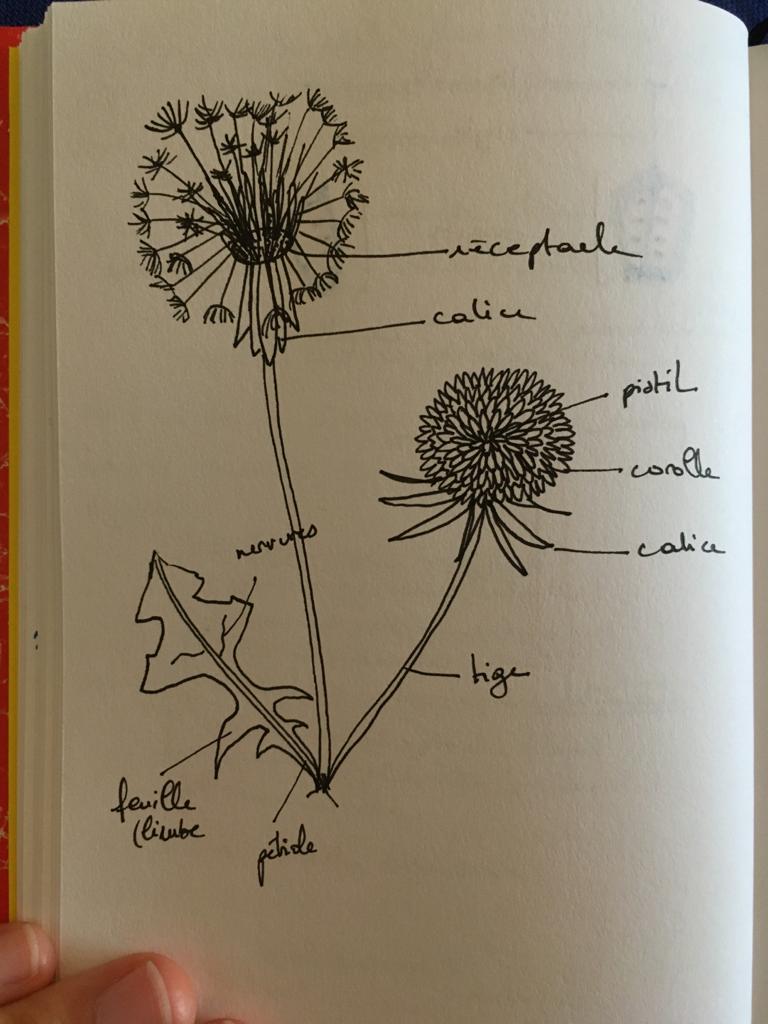 réceptacle
calice
pistil
corolle
calice
nervures
tige
feuille
(limbe
pétiole